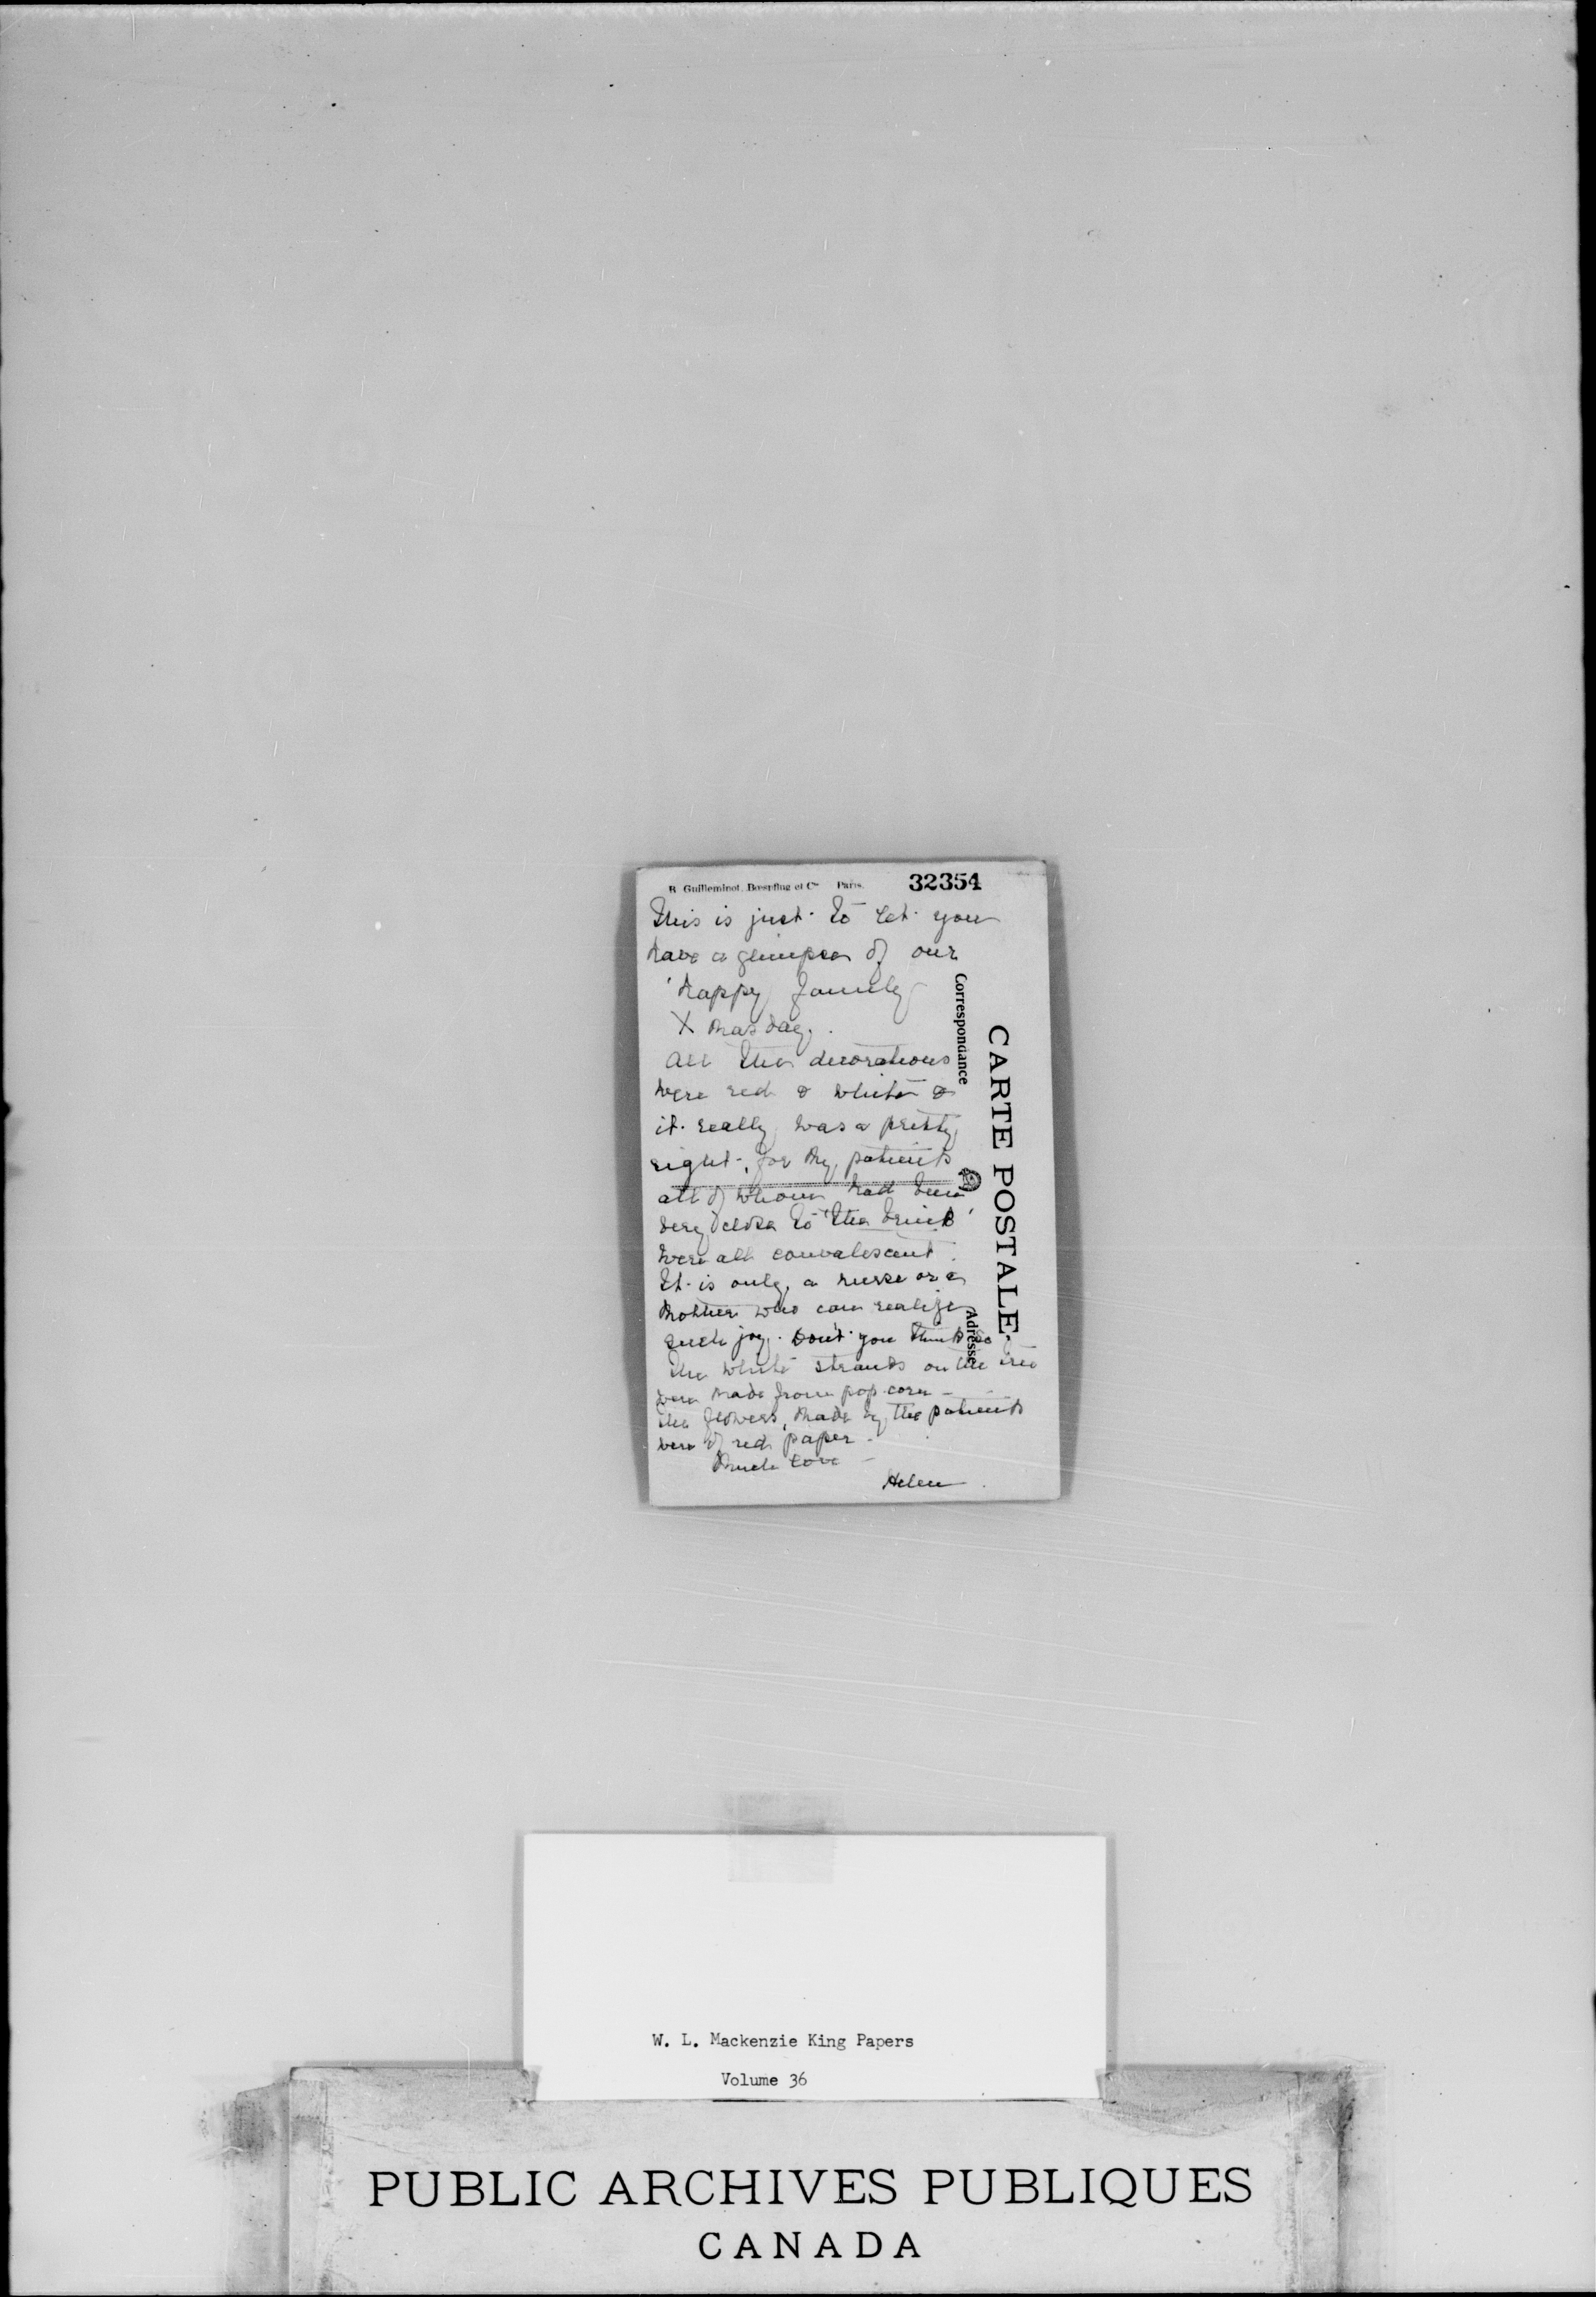 R. Guilleminot, Bœspflug et Cie Paris.
32354
This is just to let you
have a glimpse of our
'happy family
Xmas day.
All the decorations
were red & white &
it really was a pretty
sight, for my patients
all of whom had been
very close to 'the brink'
were all convalescent.
It is only a nurse or a
mother who can realize
such joy. Don't you think so
The white strands on the tree
were made from pop-corn -
The flowers, made by the patients
were of red paper -
Much love -
Helen
Correspondance
CARTE POSTALE.
Adresse
W. L. Mackenzie King Papers
Volume 36
PUBLIC ARCHIVES PUBLIQUES
CANADA